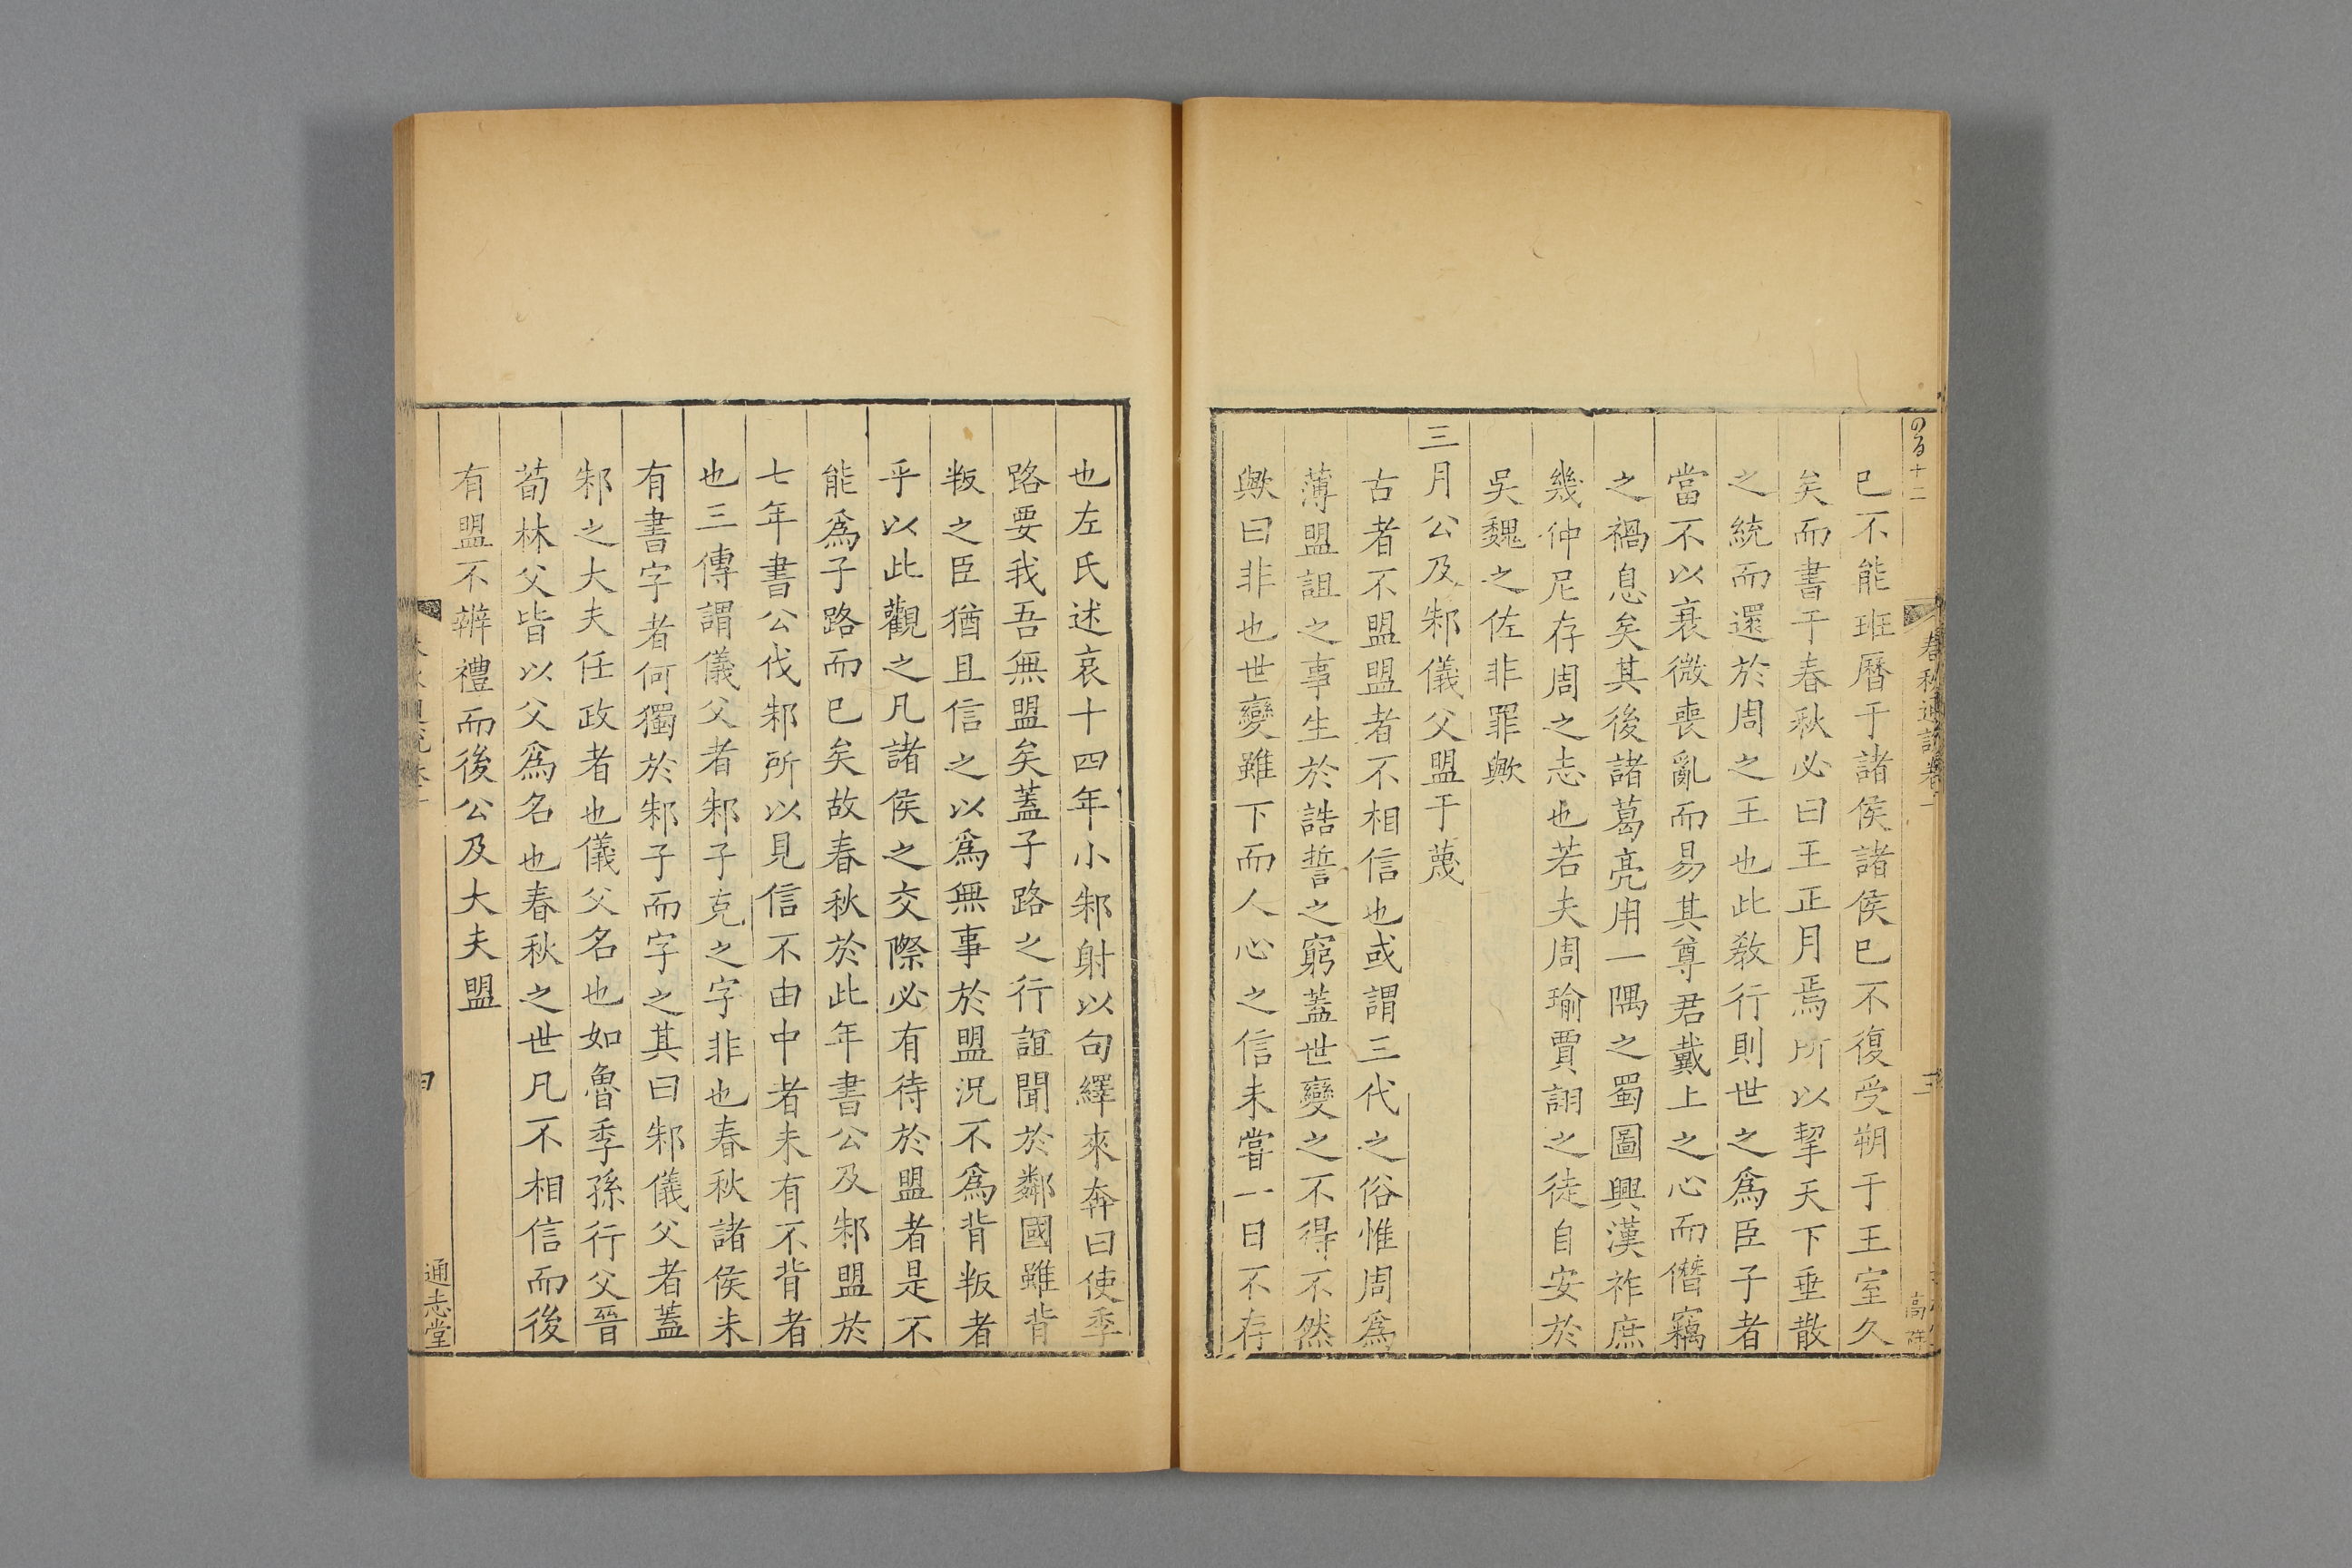 已不能班曆于諸侯諸侯已不復受朔于王室久
矣而書于春秋必曰王正月焉所以挈天下垂散
之統而還於周之王也此敎行則世之爲臣子者
當不以衰微喪亂而易其尊君戴上之心而僭竊
之禍息矣其後諸葛亮用一隅之蜀圖興漢祚庶
幾仲尼存周之志也若夫周瑜賈詡之徒自安於
吳魏之佐非罪歟
三月公及邾儀父盟于蔑
古者不盟盟者不相信也或謂三代之俗惟周爲
薄盟詛之事生於誥誓之窮蓋世變之不得不然
歟曰非也世變雖下而人心之信未嘗一日不存
也左氏述哀十四年小邾射以句繹來奔曰使季
路要我吾無盟矣蓋子路之行誼聞於鄰國雖背
叛之臣猶且信之以爲無事於盟況不爲背叛者
乎以此觀之凡諸侯之交際必有待於盟者是不
能爲子路而已矣故春秋於此年書公及邾盟於
七年書公伐邾所以見信不由中者未有不背者
也三傳謂儀父者邾子克之字非也春秋諸侯未
有書字者何獨於邾子而字之其曰邾儀父者蓋
邾之大夫任政者也儀父名也如魯季孫行父晉
荀林父皆以父爲名也春秋之世凡不相信而後
有盟不辨禮而後公及大夫盟
通志堂